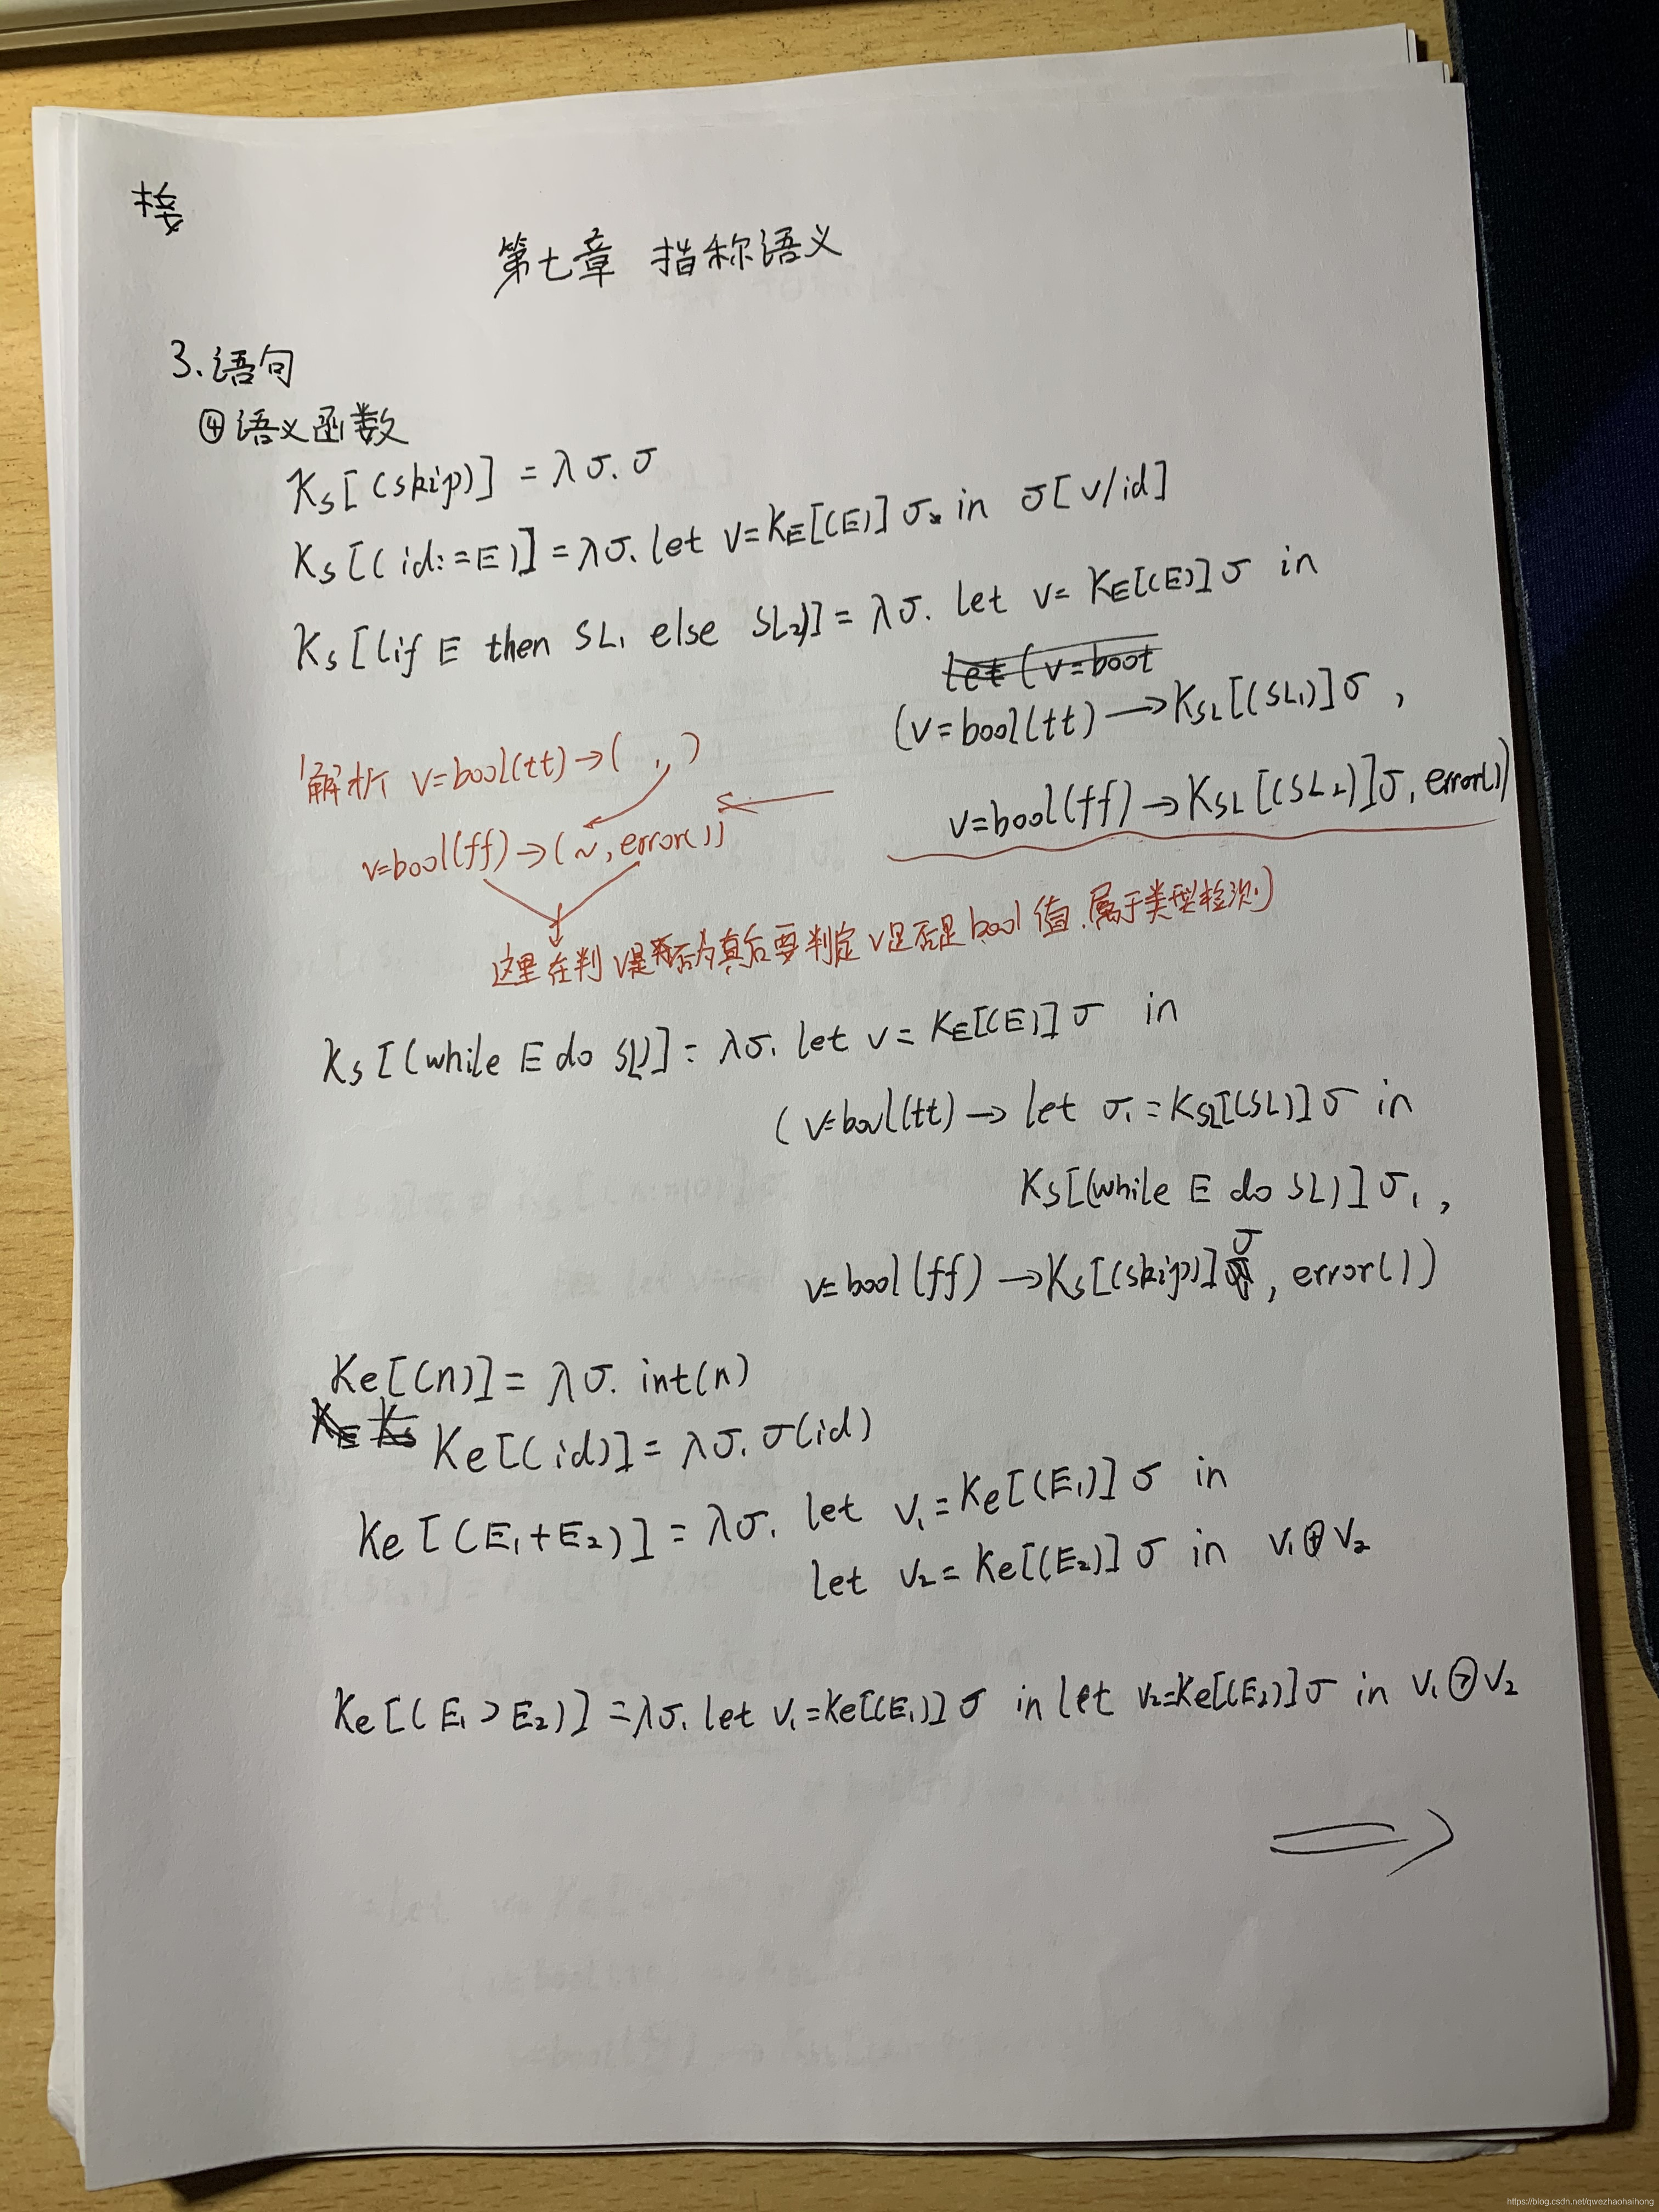 接
第七章 指称语义
3. 语句
④ 语义函数
Ks[(skip)] = λσ. σ
Ks[(id:=E)] = λσ. let v=KE[(E)]σ. in σ[v/id]
Ks[(if E then SL₁ else SL₂)] = λσ. let v= KE[(E)]σ in
(v=bool(tt) → KSL[(SL₁)]σ ,
v=bool(ff) → KSL[(SL₂)]σ, error())
解析 v=bool(tt)→( , )
v=bool(ff)→(~, error())
这里在判v是否为真后要判定v是否是bool值.属于类型检测)
Ks[(while E do SL)] = λσ. let v= KE[(E)]σ in
(v=bool(tt) → let σ₁=KSL[(SL)]σ in
Ks[(while E do SL)]σ₁ ,
v=bool(ff) → Ks[(skip)]σ , error())
Ke[(n)] = λσ. int(n)
Ke[(id)] = λσ. σ(id)
Ke[(E₁+E₂)] = λσ. let v₁=Ke[(E₁)]σ in
let v₂=Ke[(E₂)]σ in v₁⊕v₂
Ke[(E₁>E₂)] =λσ. let v₁=Ke[(E₁)]σ in let v₂=Ke[(E₂)]σ in v₁⧁v₂
https://blog.csdn.net/qwezhaohaihong